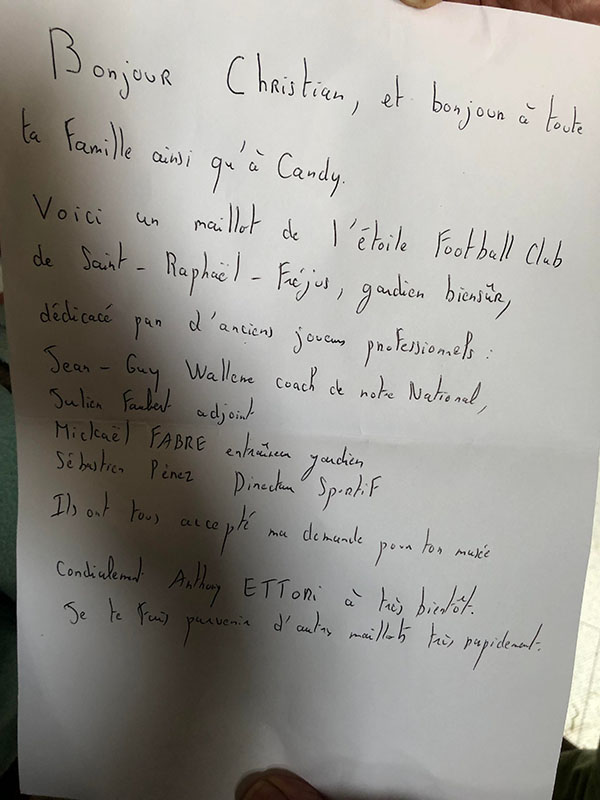 Bonjour Christian, et bonjour à toute
ta Famille ainsi qu'à Candy.
Voici un maillot de l'étoile Football Club
de Saint-Raphaël-Fréjus, gardien biensûr,
dédicacé par d'anciens joueurs professionnels :
Jean-Guy Wallene coach de notre National,
Julien Faubert adjoint
Mickaël FABRE entraîneur gardien
Sébastien Pérez Directeur Sportif
Ils ont tous accepté ma demande pour ton musée
Cordialement Anthony ETTORI à très bientôt.
Je te fais parvenir d'autres maillots très rapidement.